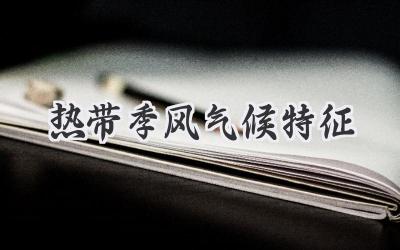 热带季风气候特征